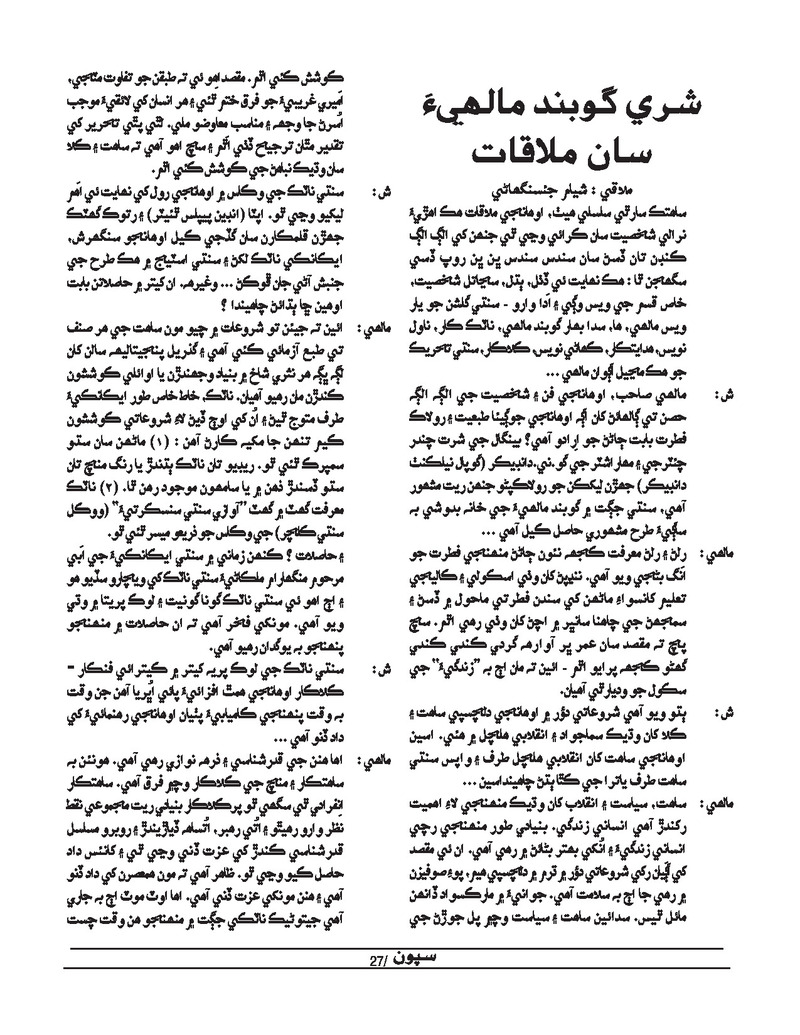 شري گوبند مالهيءَ
سان ملاقات
ملاقي : شيام جئسنگهاڻي
ساهتڪ سارٿي سلسلي هيٺ، اوهانجي ملاقات هڪ اهڙيءَ
نرالي شخصيت سان ڪرائي وڃي ٿي جنهن کي الڳ الڳ
ڪنڊن تان ڏسڻ سان سندس ڀن ڀن روپ ڏسي
سگهجن ٿا : هڪ نهايت ئي ڏٺل، ٻڌل، سڃاتل شخصيت،
خاص قسم جي ويس وڳي ۽ اَدا وارو - سنڌي گلشن جو يار
ويس مالهي، ها، سدا بهار گوبند مالهي، ناٽڪ ڪار، ناول
نويس، هدايتڪار، ڪهاڻي نويس، ڪلاڪار، سنڌي تحريڪ
جو هڪ مڃيل اڳواڻ مالهي ...
ش : مالهي صاحب، اوهانجي فن ۽ شخصيت جي الڳه الڳه
حصن تي ڳالهائڻ کان اڳه اوهانجي جوڳيئا طبعيت ۽ رولاڪ
فطرت بابت ڄاڻڻ جو ارادو آهي؟ بينگال جي شرت چندر
چئٽرجي ۽ مهاراشٽر جي گو.ني.دانڊيڪر (گوپل نيلڪنٺ
دانڊيڪر) جهڙن ليکڪن جو رولاڪپڻو جنهن ريت مشهور
آهي، سنڌي جڳت ۾ گوبند مالهيءَ جي خانه بدوشي به
ساڳيءَ طرح مشهوري حاصل ڪيل آهي ...
مالهي : رلڻ ۽ رلڻ معرفت ڪجهه نئون ڄاڻڻ منهنجي فطرت جو
اَنگ بڻجي ويو آهي. ننڍپڻ کان وٺي اسڪولي ۽ ڪاليجي
تعليم کانسواءِ ماڻهن کي سندن فطرتي ماحول ۾ ڏسڻ ۽
سمجهڻ جي چاهنا سانڀر ۾ اچڻ کان وٺي رهي اٿم. سچ
پاڇ ته مقصد سان عمر ڀر آواره گردي ڪندي ڪندي
گهڻو ڪجهه پرايو اٿم - ائين ته مان اڄ به ”زندگيءَ“ جي
سڪول جو وديارٿي آهيان.
ش : ٻڌو ويو آهي شروعاتي دؤر ۾ اوهانجي دلچسپي ساهت ۽
ڪلا کان وڌيڪ سماجواد ۽ انقلابي هلچل ۾ هئي. اسين
اوهانجي ساهت کان انقلابي هلچل طرف ۽ واپس سنڌي
ساهت طرف ياترا جي ڪٿا ٻڌڻ چاهينداسين ...
مالهي : ساهت، سياست ۽ انقلاب کان وڌيڪ منهنجي لاءِ اهميت
رکندڙ آهي انساني زندگي. بنيادي طور منهنجي رچي
انساني زندگيءَ ۽ اُنکي بهتر بڻائڻ ۾ رهي آهي. ان ئي مقصد
کي اڳيان رکي شروعاتي دؤر ۾ ڌرم ۾ دلچسپي هيم، پوءِ صوفيزن
۾ رهي جا اڄ به سلامت آهي. جوانيءَ ۾ مارڪسواد ڏانهن
مائل ٿيس. سدائين ساهت ۽ سياست وچ۾ پل جوڙڻ جي
ڪوشش ڪئي اٿم. مقصد اِهو ئي ته طبقن جو تفاوت مٽائجي،
اَميري غريبيءَ جو فرق ختم ٿئي ۽ هر انسان کي لائقيءَ موجب
اُسرڻ جا وجهه ۽ مناسب معاوضو ملي. ٿئي پٿي تحرير کي
تقدير مٿان ترجيح ڏئي اٿم ۽ سچ اهو آهي ته ساهت ۽ ڪلا
سان وڌيڪ نباهڻ جي ڪوشش ڪئي اٿم.
ش : سنڌي ناٽڪ جي وڪاس ۾ اوهانجي رول کي نهايت ئي اَهم
ليکيو وڃي ٿو. اِپٽا (انڊين پيپلس ٿئيٽر) ۽ رتوڪ گهٽڪ
جهڙن قلمڪارن سان گڏجي ڪيل اوهانجو سنگهرش،
ايڪانڪي ناٽڪ لکڻ ۽ سنڌي اسٽيج ۾ هڪ طرح جي
جنبش آڻي جان ڦوڪڻ ... وغيره. ان کيتر ۾ حاصلاتن بابت
اوهين ڇا ٻڌائڻ چاهيندا ؟
مالهي : ائين ته جيئن تو شروعات ۾ چيو مون ساهت جي هر صنف
تي طبع آزمائي ڪئي آهي ۽ گذريل پنجيتاليهه سالن کان
لڳه ڀڳه هر نثري شاخ ۾ بنياد وجهندڙن يا اوائلي ڪوششون
ڪندڙن مان رهيو آهيان. ناٽڪ، خاص خاص طور ايڪانڪيءَ
طرف متوج ٿيڻ ۽ اُن کي اوج ڏيڻ لاءِ شروعاتي ڪوششون
ڪيم تنهن جا مکيه ڪارڻ آهن : (١) ماڻهن سان سڌو
سمپرڪ ٿئي ٿو. ريڊيو تان ناٽڪ ٻڌندڙ يا رنگ منچ تان
سڌو ڏسندڙ ذهن ۾ يا سامهون موجود رهن ٿا. (٢) ناٽڪ
معرفت گهٽ ۾ گهٽ ”آواز ي سنڌي سنسڪرتيءَ“ (ووڪل
سنڌي ڪلچر) جي وڪاس جو ذريعو ميسر ٿئي ٿو.
۽ حاصلات ؟ ڪنهن زماني ۾ سنڌي ايڪانڪيءَ جي اَبي
مرحوم منگهارام ملڪاڻيءَ سنڌي ناٽڪ کي ويچارو سڏيو هو
۽ اڄ اهو ئي سنڌي ناٽڪ گوناگونيت ۽ لوڪ پريتا ۾ وڌي
ويو آهي. مونکي فخر آهي ته ان حاصلات ۾ منهنجو
پنهنجو به يوگدان رهيو آهي.
ش : سنڌي ناٽڪ جي لوڪ پريه کيتر ۾ ڪيترائي فنڪار -
ڪلاڪار اوهانجي همٿ افزائيءَ پائي اُڀريا آهن جن وقت
به وقت پنهنجي ڪاميابيءَ پٺيان اوهانجي رهنمائيءَ کي
داد ڏنو آهي ...
مالهي : اها هنن جي قدرشناسي ۽ ذرهه نوازي رهي آهي. هونئن به
ساهتڪار ۽ منچ جي ڪلاڪار وچ۾ فرق آهي. ساهتڪار
اِنفرادي ٿي سگهي ٿو پر ڪلاڪار بنيادي ريت مجموعي نقط
نظر وارو رهيٿو ۽ اُتي رهبر، اُتساهه ڏياريندڙ ۽ روبرو مسلسل
قدرشناسي ڪندڙ کي عزت ڏني وڃي ٿي ۽ کانئس داد
حاصل ڪيو وڃي ٿو. ظاهر آهي ته مون همعصرن کي داد ڏنو
آهي ۽ هنن مونکي عزت ڏني آهي. اها اوٽ موٽ اڄ به جاري
آهي جيتوڻيڪ ناٽڪي جڳت ۾ منهنجو هن وقت چست
سپون /27